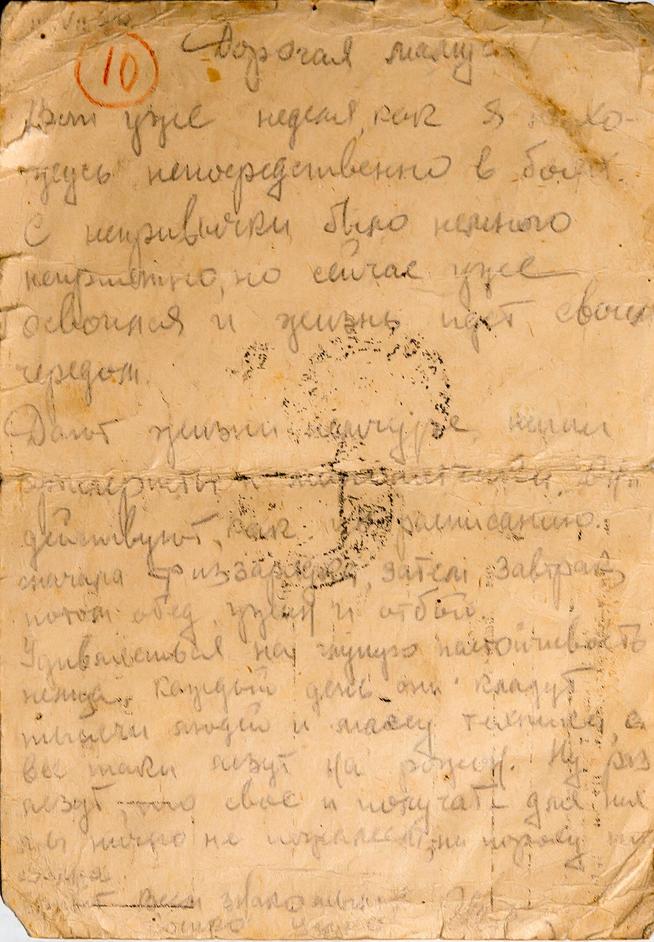 10
Дорогая мамуся
Вот уже неделя, как я нахо-
жусь непосредственно в боях.
С непривычки было немного
неприятно, но сейчас уже
освоился и жизнь идет своим
чередом.
Дают жизни немчуре наши
действуют, как расписанию.
сначала физзарядка, затем завтрак,
потом обед, ужин и отбой.
Удивляешься на глупую настойчивость
немца. Каждый день они кладут
тысячи людей и массу техники, а
все таки лезут на рожон. Ну, раз
лезут, то свое и получат для них
мы ничего не пожалеем, ни пороху
всем знакомым